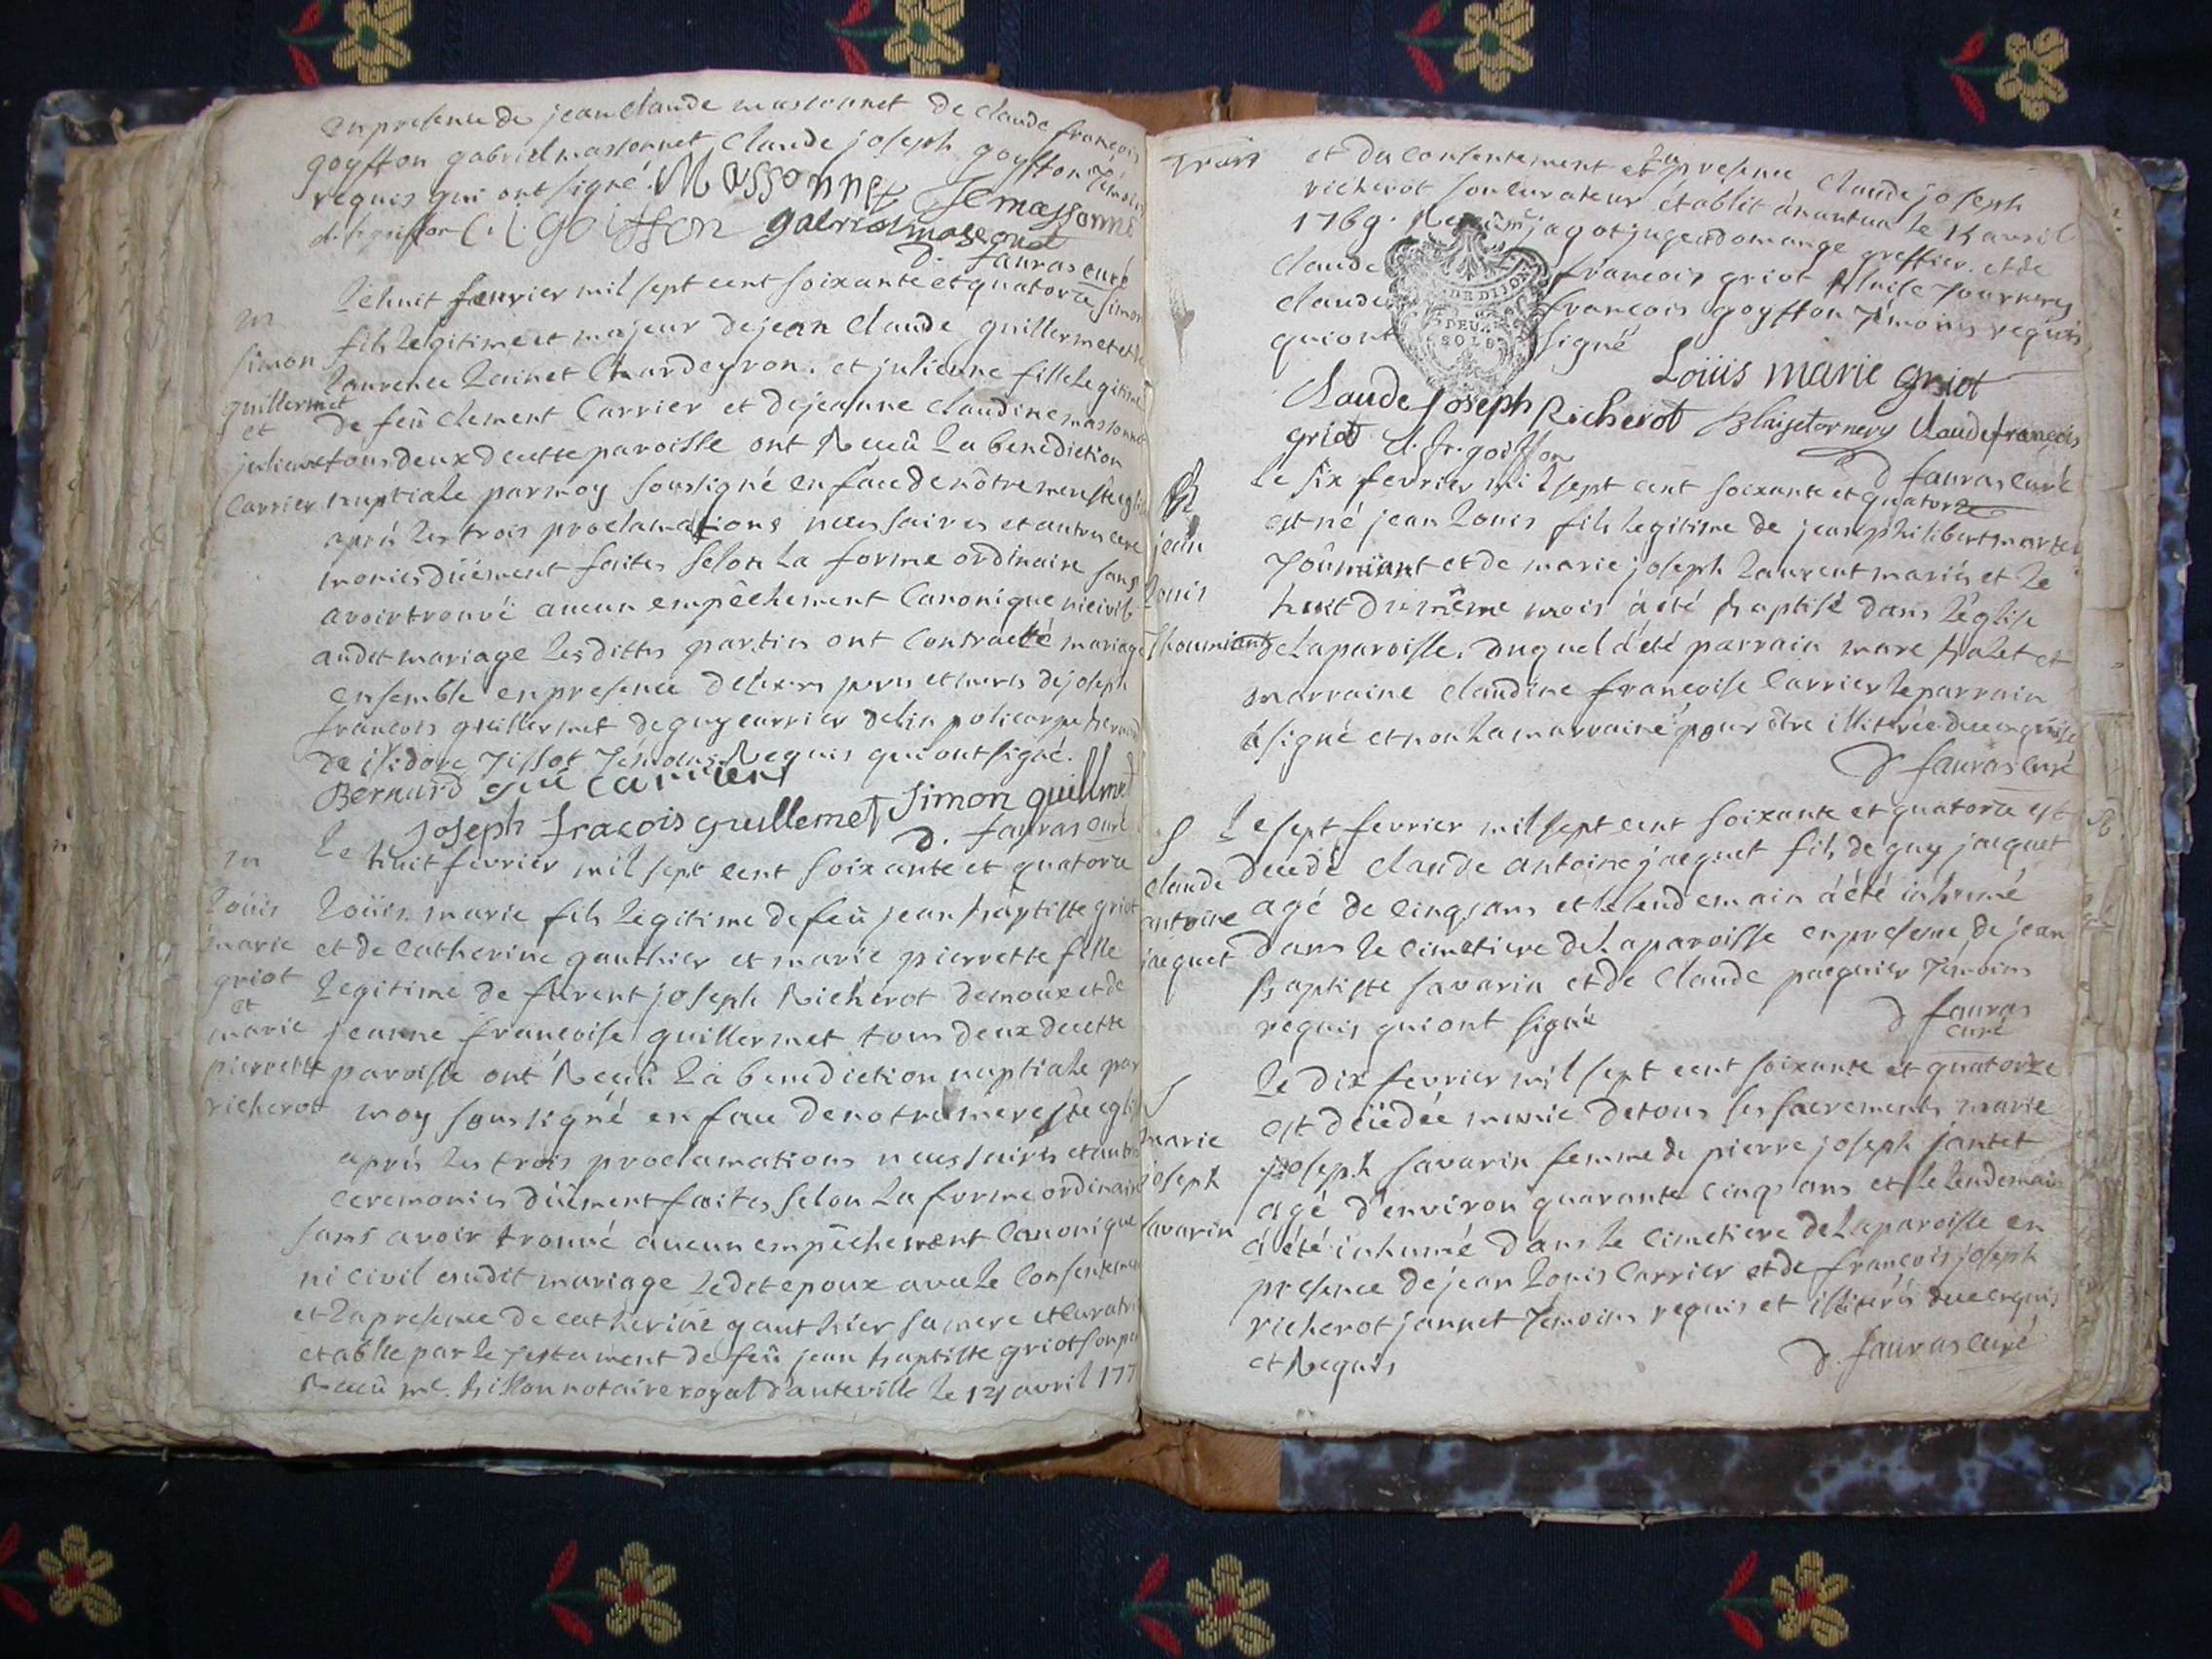 en presence de jean claude massonnet de claude françois
goyffon gabriel massonnet claude joseph goyffon Témoins
requis qui ont signé. Massonnet JC massonne
C. j. goiffon gabriel masonet
d. fauras curé
Le huit fevrier mil sept cent soixante et quatorze simon
m
simon
guillermet
et
julienne
Carrier
fils legitime et majeur de jean claude guillermet et de
Laurence Lainet Chardeyron. et julienne fille legitime
de feû clement Carrier et de jeanne claudine massonnet
tous deux de cette paroisse ont Receû La benediction
nuptiale par moy soussigné en face de nôtre mere ste eglise
aprés les trois proclamations necessaires et autres cere
monies düement faites selon La forme ordinaire sans
avoir trouvé aucun empêchement Canonique ni civil
audit mariage Les dittes parties ont Contracté mariage
ensemble en presence de joseph
françois guillermet de guy carrier de policarpe bernard
de isidore Tissot Témoins Requis qui ont signé.
Bernard gui carrier
joseph fracois guillemet Simon guillmet
d. fauras curé
m
Loüis
marie
griot
et
marie
pierrette
richerot
Le huit fevrier mil sept cent soixante et quatorze
Loüis marie fils legitime de feû jean baptiste griot
et de catherine gauthier et marie pierrette fille
Legitime de joseph Richerot et de
jeanne françoise guillermet tous deux de cette
paroisse ont Receû La benediction nuptiale par
moy soussigné en face de notre mere ste eglise
aprés les trois proclamations necessaires et autres
ceremonies düement faites selon La forme ordinaire
sans avoir trouvé aucun empêchement Canonique
ni civil audit mariage Ledit epoux avec le Consentement
et La presence de catherine gauthier sa mere et Curatrice
etablie par le Testament de feû jean baptiste griot son pere
Receû me. notaire royal d'auteville le avril 177
et du consentement et La presence Claude joseph
richerot son curateur établit á nantua le avril
1769. jagot juge et domange greffier. et de
claude françois griot blaise Tournery
claude françois goyffon Témoins requis
qui ont signé
DE DIJON
DEUX
SOLS
Loüis marie griot
Claude Joseph Richerot Blaise tornery Claude françois
griot cl. fr. goiffon
d fauras curé
B
jean
Louis
Thoumiant
Le six fevrier mil sept cent soixante et quatorze
est né jean Louis fils legitime de jean philibert
Toûmiant et de marie joseph Laurent mariés et le
huit du même mois á été baptisé dans L'église
de La paroisse. duquel á été parrain marc balet et
marraine claudine françoise Carrier le parrain
a signé et non La marraine pour être illitérée de ce enquise
d fauras curé
S
claude
antoine
jacquet
Le sept fevrier mil sept cent soixante et quatorze est
decedé claude antoine jacquet fils de guy jacquet
agé de cinq ans et le lendemain á été inhumé
dans le cimetiere de La paroisse en presence de jean
Baptiste savarin et de claude pacquier Temoins
requis qui ont signé
d fauras
curé
S
marie
joseph
savarin
Le dix fevrier mil sept cent soixante et quatorze
est décédée munie de tous ses sacrements marie
joseph savarin femme de pierre joseph jantet
agé d'environ quarante cinq ans et le lendemain
á été inhumé dans le cimetiere de La paroisse en
presence de jean Louis Carrier et de françois joseph
richerot jannet Temoins requis et illiterés de ce enquis
et Requis
d. fauras curé